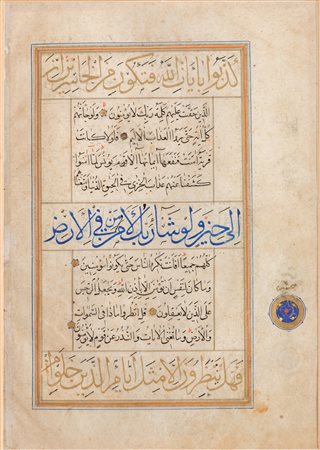 كذبوا بايات الله فتكون من الخاسرين ان
الذين حقت عليهم كلمة ربك لا يؤمنون ولو جاءتهم
كل اية حتى يروا العذاب الاليم فلولا كانت
قرية امنت فنفعها ايمانها الا قوم يونس لما امنوا
كشفنا عنهم عذاب الخزي في الحيوة الدنيا ومتعناهم
الى حين ولو شاء ربك لامن من في الارض
كلهم جميعا افانت تكره الناس حتى يكونوا مؤمنين
وما كان لنفس ان تؤمن الا باذن الله ويجعل الرجس
على الذين لا يعقلون قل انظروا ماذا في السموات
والارض وما تغني الايات والنذر عن قوم لا يؤمنون
فهل ينتظرون الا مثل ايام الذين خلوا من